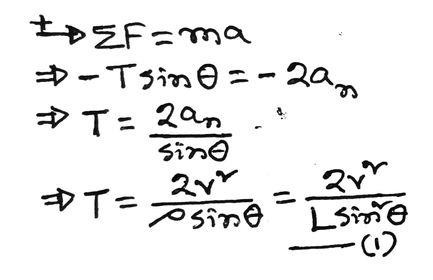 +→ ΣF = ma
⇒ - T sinθ = - 2aₙ
⇒ T = 2aₙ / sinθ
⇒ T = 2v² / ρ sinθ = 2v² / L sin²θ
—— (1)